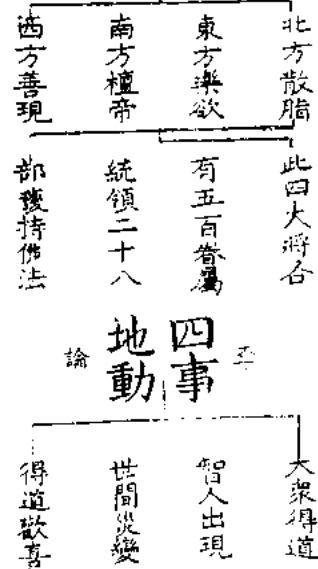 北方散脂
東方樂欲
南方檀帝
西方善現
此四大將合
有五百眷屬
統領二十八
部護持佛法
四事
地動
論
大衆得道
智人出現
世間災變
得道歡喜